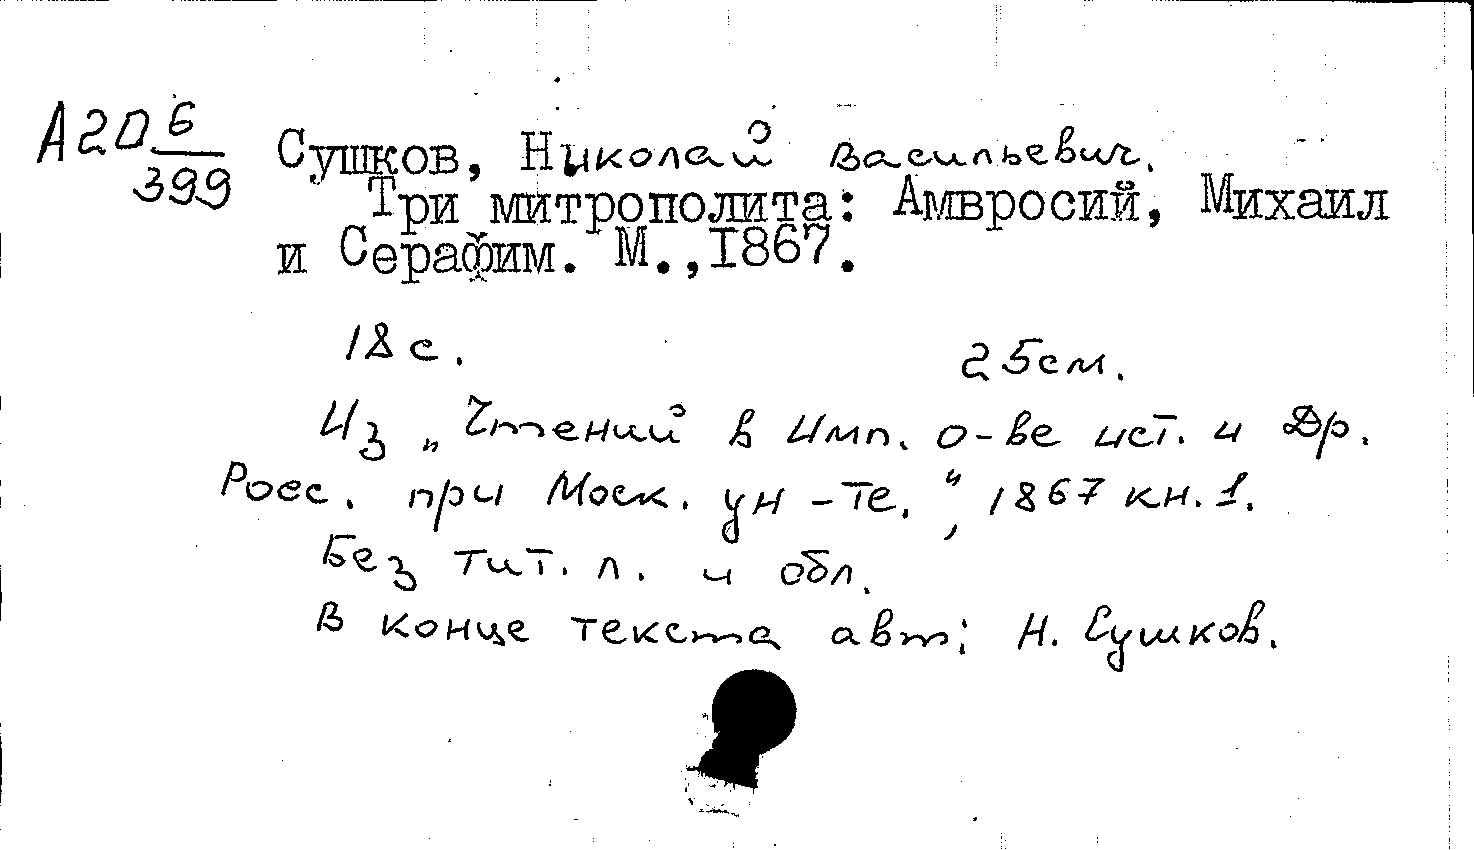 А20 6/399
Сушков, Николай Васильевич.
Три митрополита: Амвросий, Михаил
и Серафим. М.,I867.
18 с. 25 см.
Из „Чтений в Имп. о-ве ист. и Др.
Росс. при Моск. ун-те.", 1867 кн. 1.
Без тит. л. и обл.
В конце текста авт: Н. Сушков.